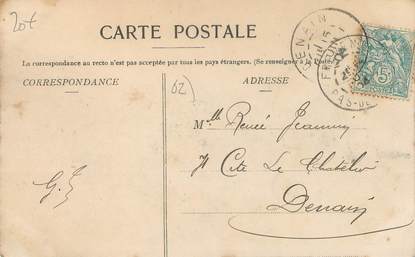 CARTE POSTALE
La correspondance au recto n'est pas acceptée par tous les pays étrangers. (Se renseigner à la Poste)
CORRESPONDANCE
ADRESSE
62)
Mlle Renée
Cité Le
Denain
G. J
DENAIN
PAS-DE
5